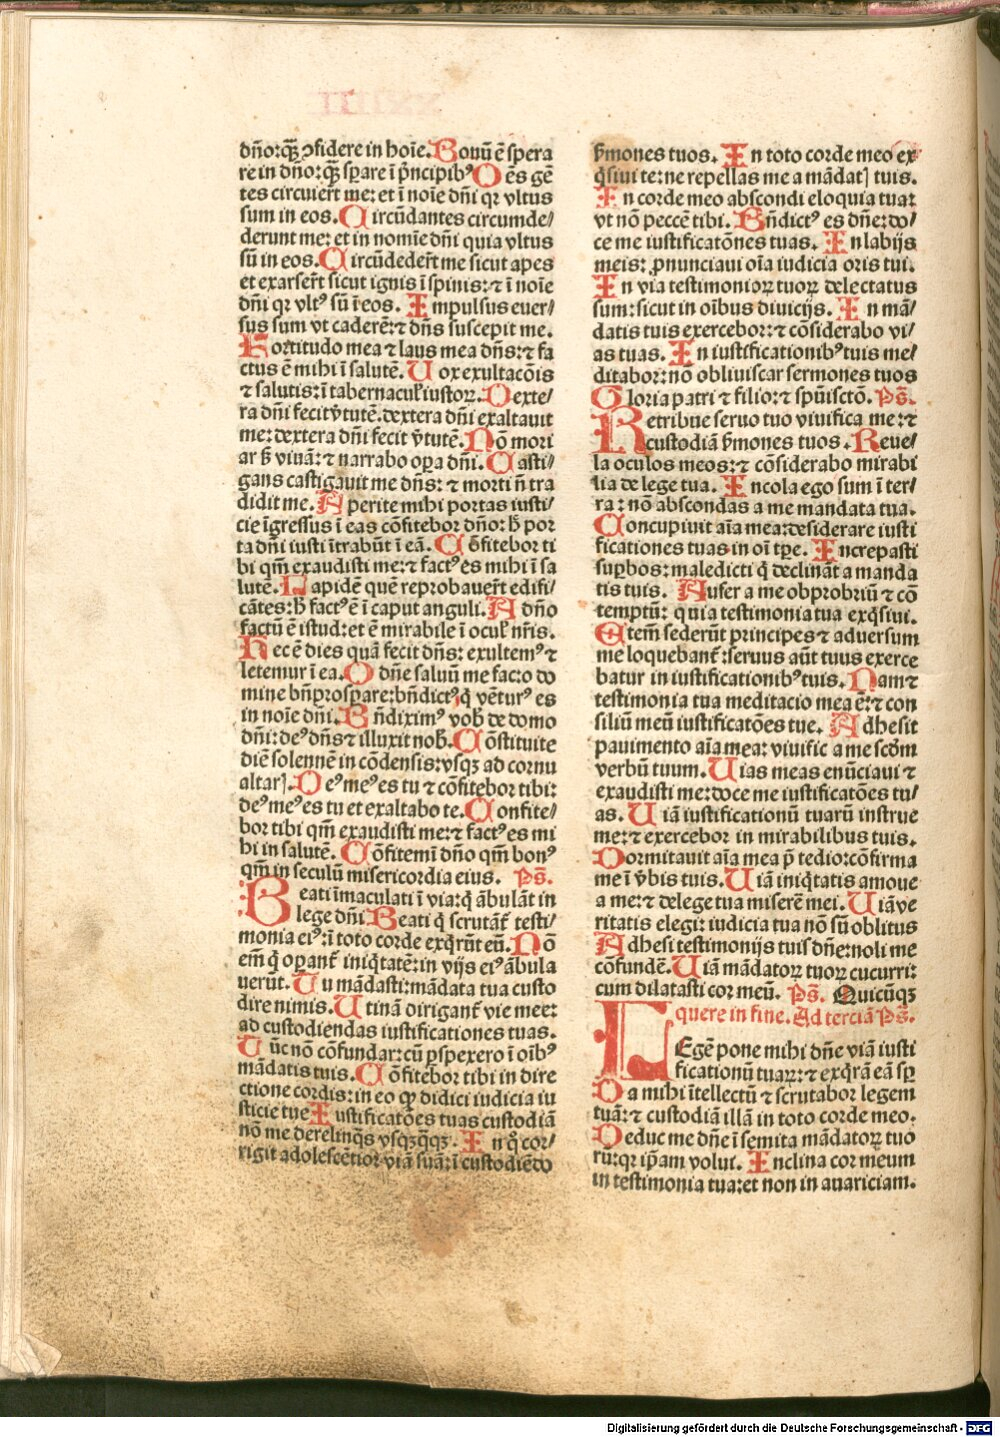 dño:qȝ ↄfidere in hoīe. Bonū ē spera
re in dño:qȝ sꝑare ī p̄ncipibꝰ O ēs gē
tes circuier̄t me: et ī noīe dñi qꝛ vltus
sum in eos. Circūdantes circumde/
derunt me: et in nomīe dñi quia vltus
sū in eos. Circūdeder̄t me sicut apes
et exarser̄t sicut ignis ī spinis: ⁊ ī noīe
dñi qꝛ vltꝰ sū ī eos. Impulsus euer/
sus sum vt caderē: ⁊ dñs suscepit me.
Fortitudo mea ⁊ laus mea dñs: ⁊ fa
ctus ē mihi ī salutē. Uox exultacōis
⁊ salutis: ī tabernacul̓ iustoꝝ. Dexte/
ra dñi fecit v̓tutē. dextera dñi exaltauit
me: dextera dñi fecit v̓tutē. Nō mori
ar s̓ viuā: ⁊ narrabo oꝑa dñi. Casti/
gans castigauit me dñs: ⁊ morti ñ tra
didit me. Aperite mihi portas iusti/
cie īgressus ī eas cōfitebor dño: h̓ por
ta dñi iusti ītrabūt ī eā. Cōfitebor ti
bi qm̄ exaudisti me: ⁊ factꝰ es mihi ī sa
lutē. Lapidē quē reprobauer̄t edifi/
cātes: h̓ factꝰ ē ī caput anguli. A dño
factū ē istud: et ē mirabile ī ocul̓ nr̄is.
Hec ē dies quā fecit dñs: exultemꝰ ⁊
letemur ī ea. O dñe saluū me fac: o do
mine bñ prosꝑare: bñdictꝰ q̓ vēturꝰ es
in noīe dñi. Bñdiximꝰ vob̓ de domo
dñi: deꝰ dñs ⁊ illuxit nob̓. Cōstituite
diē solennē in cōdensis: vsqȝ ad cornu
altarꝭ. Deꝰ meꝰ es tu ⁊ cōfitebor tibi:
deꝰ meꝰ es tu et exaltabo te. Confite/
bor tibi qm̄ exaudisti me: ⁊ factꝰ es mi
hi in salutē. Cōfitemī dño qm̄ bonꝰ
qm̄ in seculū misericordia eius. Ps̄.
Beati īmaculati ī via: q̓ ābulāt in
lege dñi Beati q̓ scrutāt̄ testi/
monia eiꝰ: ī toto corde exq̓rūt eū. Nō
em̄ q̓ oꝑant̄ iniq̓tatē: in vijs eiꝰ ābula
uerūt. Tu mādasti: mādata tua custo
dire nimis. Utinā dirigant̄ vie mee:
ad custodiendas iustificationes tuas.
Tūc nō cōfundar: cū ꝑspexero ī oībꝰ
mādatis tuis. Cōfitebor tibi in dire
ctione cordis: in eo ꝙ didici iudicia iu
sticie tue Iustificatōes tuas custodiā
nō me derelinq̄s vsqȝq̄qȝ. In q̓ cor/
rigit adolescētior viā suā: ī custodiēdo
s̓mones tuos. In toto corde meo ex
q̓siui te: ne repellas me a mādatꝭ tuis.
In corde meo abscondi eloquia tua:
vt nō peccē tibi. Bñdictꝰ es dñe: do/
ce me iustificatōnes tuas. In labijs
meis: ꝓnunciaui oīa iudicia oris tui.
In via testimonioꝝ tuoꝝ delectatus
sum: sicut in oībus diuicijs. In mā/
datis tuis exercebor: ⁊ cōsiderabo vi/
as tuas. In iustificationibꝰ tuis me/
ditabor: nō obliuiscar sermones tuos
Gloria patri ⁊ filio: ⁊ spūisctō. Ps̄.
Retribue seruo tuo viuifica me: ⁊
custodiā s̓mones tuos. Reue/
la oculos meos: ⁊ cōsiderabo mirabi
lia de lege tua. Incola ego sum ī ter/
ra: nō abscondas a me mandata tua.
Concupiuit aīa mea: desiderare iusti
ficationes tuas in oī tꝑe. Increpasti
suꝑbos: maledicti q̓ declināt a manda
tis tuis. Aufer a me obprobriū ⁊ cō
temptū: quia testimonia tua exq̓siui.
Etem̄ sederūt principes ⁊ aduersum
me loquebant̄: seruus aūt tuus exerce
batur in iustificationibꝰ tuis. Nam ⁊
testimonia tua meditacio mea ē: ⁊ con
siliū meū iustificatōes tue. Adhesit
pauimento aīa mea: viuific a me scd̓m
verbū tuum. Uias meas enūciaui ⁊
exaudisti me: doce me iustificatōes tu/
as. Uiā iustificationū tuarū instrue
me: ⁊ exercebor in mirabilibus tuis.
Dormitauit aīa mea p̄ tedio: cōfirma
me ī v̓bis tuis. Uiā iniq̓tatis amoue
a me: ⁊ de lege tua miserē mei. Uiā ve
ritatis elegi: iudicia tua nō sū oblitus
Adhesi testimonijs tuis dñe: noli me
cōfundē. Uiā mādatoꝝ tuoꝝ cucurri:
cum dilatasti cor meū. Ps̄. Quicūqȝ
quere in fine. Ad terciā Ps̄.
LEgē pone mihi dñe viā iusti
ficationū tuaꝝ: ⁊ exq̓rā eā sꝑ
Da mihi ītellectū ⁊ scrutabor legem
tuā: ⁊ custodiā illā in toto corde meo.
Deduc me dñe ī semita mādatoꝝ tuo
rū: qꝛ ip̄am volui. Inclina cor meum
in testimonia tua: et non in auariciam.
Digitalisierung gefördert durch die Deutsche Forschungsgemeinschaft - DFG